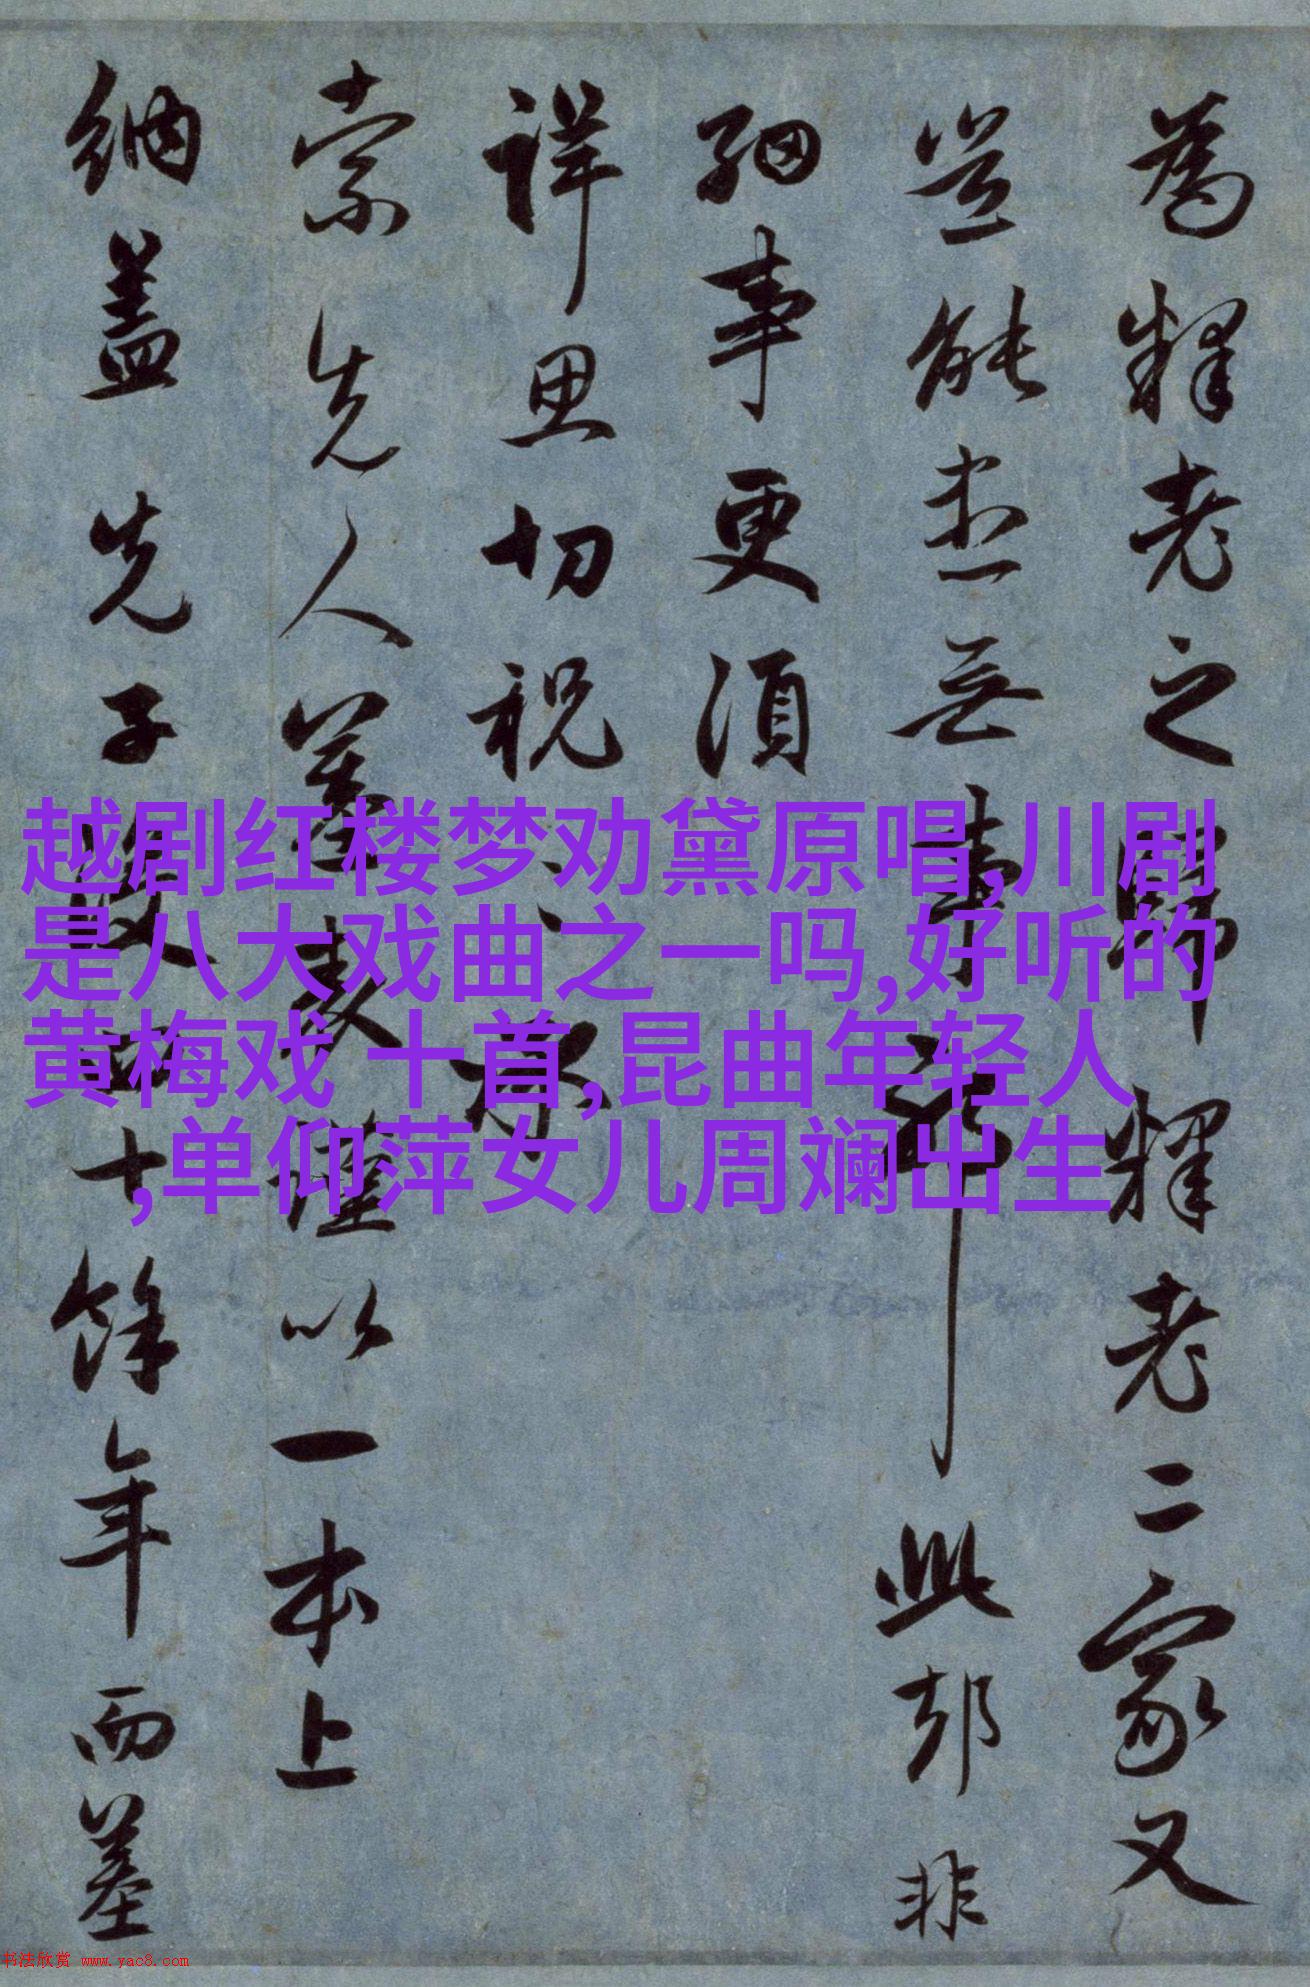 為釋老之歸釋老二家又
豈能無事耶此却非
細事更須
詳思切祝
索先人墓表謹以一本上
納蓋先子歿四十餘年而墓
越剧红楼梦劝黛原唱,川剧
是八大戏曲之一吗,好听的
黄梅戏 十首,昆曲年轻人
,单仰萍女儿周斓出生
书法欣赏 www.yac8.com